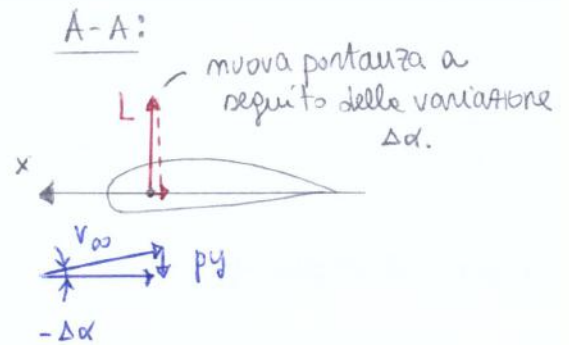 A-A:
nuova portanza a
seguito della variazione
Δα.
L
x
V∞
py
-Δα